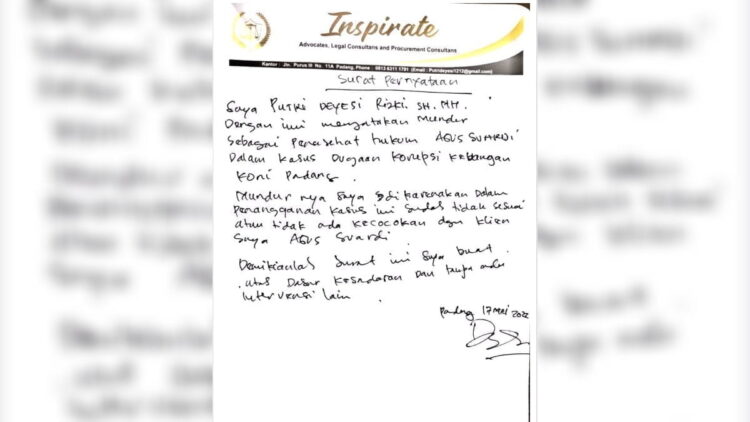 Inspirate
Advocates, Legal Consultans and Procurement Consultans
Kantor : Jln. Purus III No. 11A Padang, Phone : 0813 6311 1791 (Email : Putrideyes1212@gmail.com)
Surat Pernyataan
Saya PUTRI DEYESI Rizki SH. MH.
Dengan ini menyatakan Mundur
sebagai Penasehat hukum AGUS SUARDI
Dalam Kasus Dugaan Korupsi Keuangan
KONI Padang.
Mundur nya saya dikarenakan dalam
Penangganan kasus ini sudah tidak sesuai
atau tidak ada kecocokan dgn klien
saya AGUS Suardi.
Demikianlah Surat ini saya buat
atas Dasar Kesadaran Dan tanpa ada
Intervensi lain
Padang 17 Mei 2022